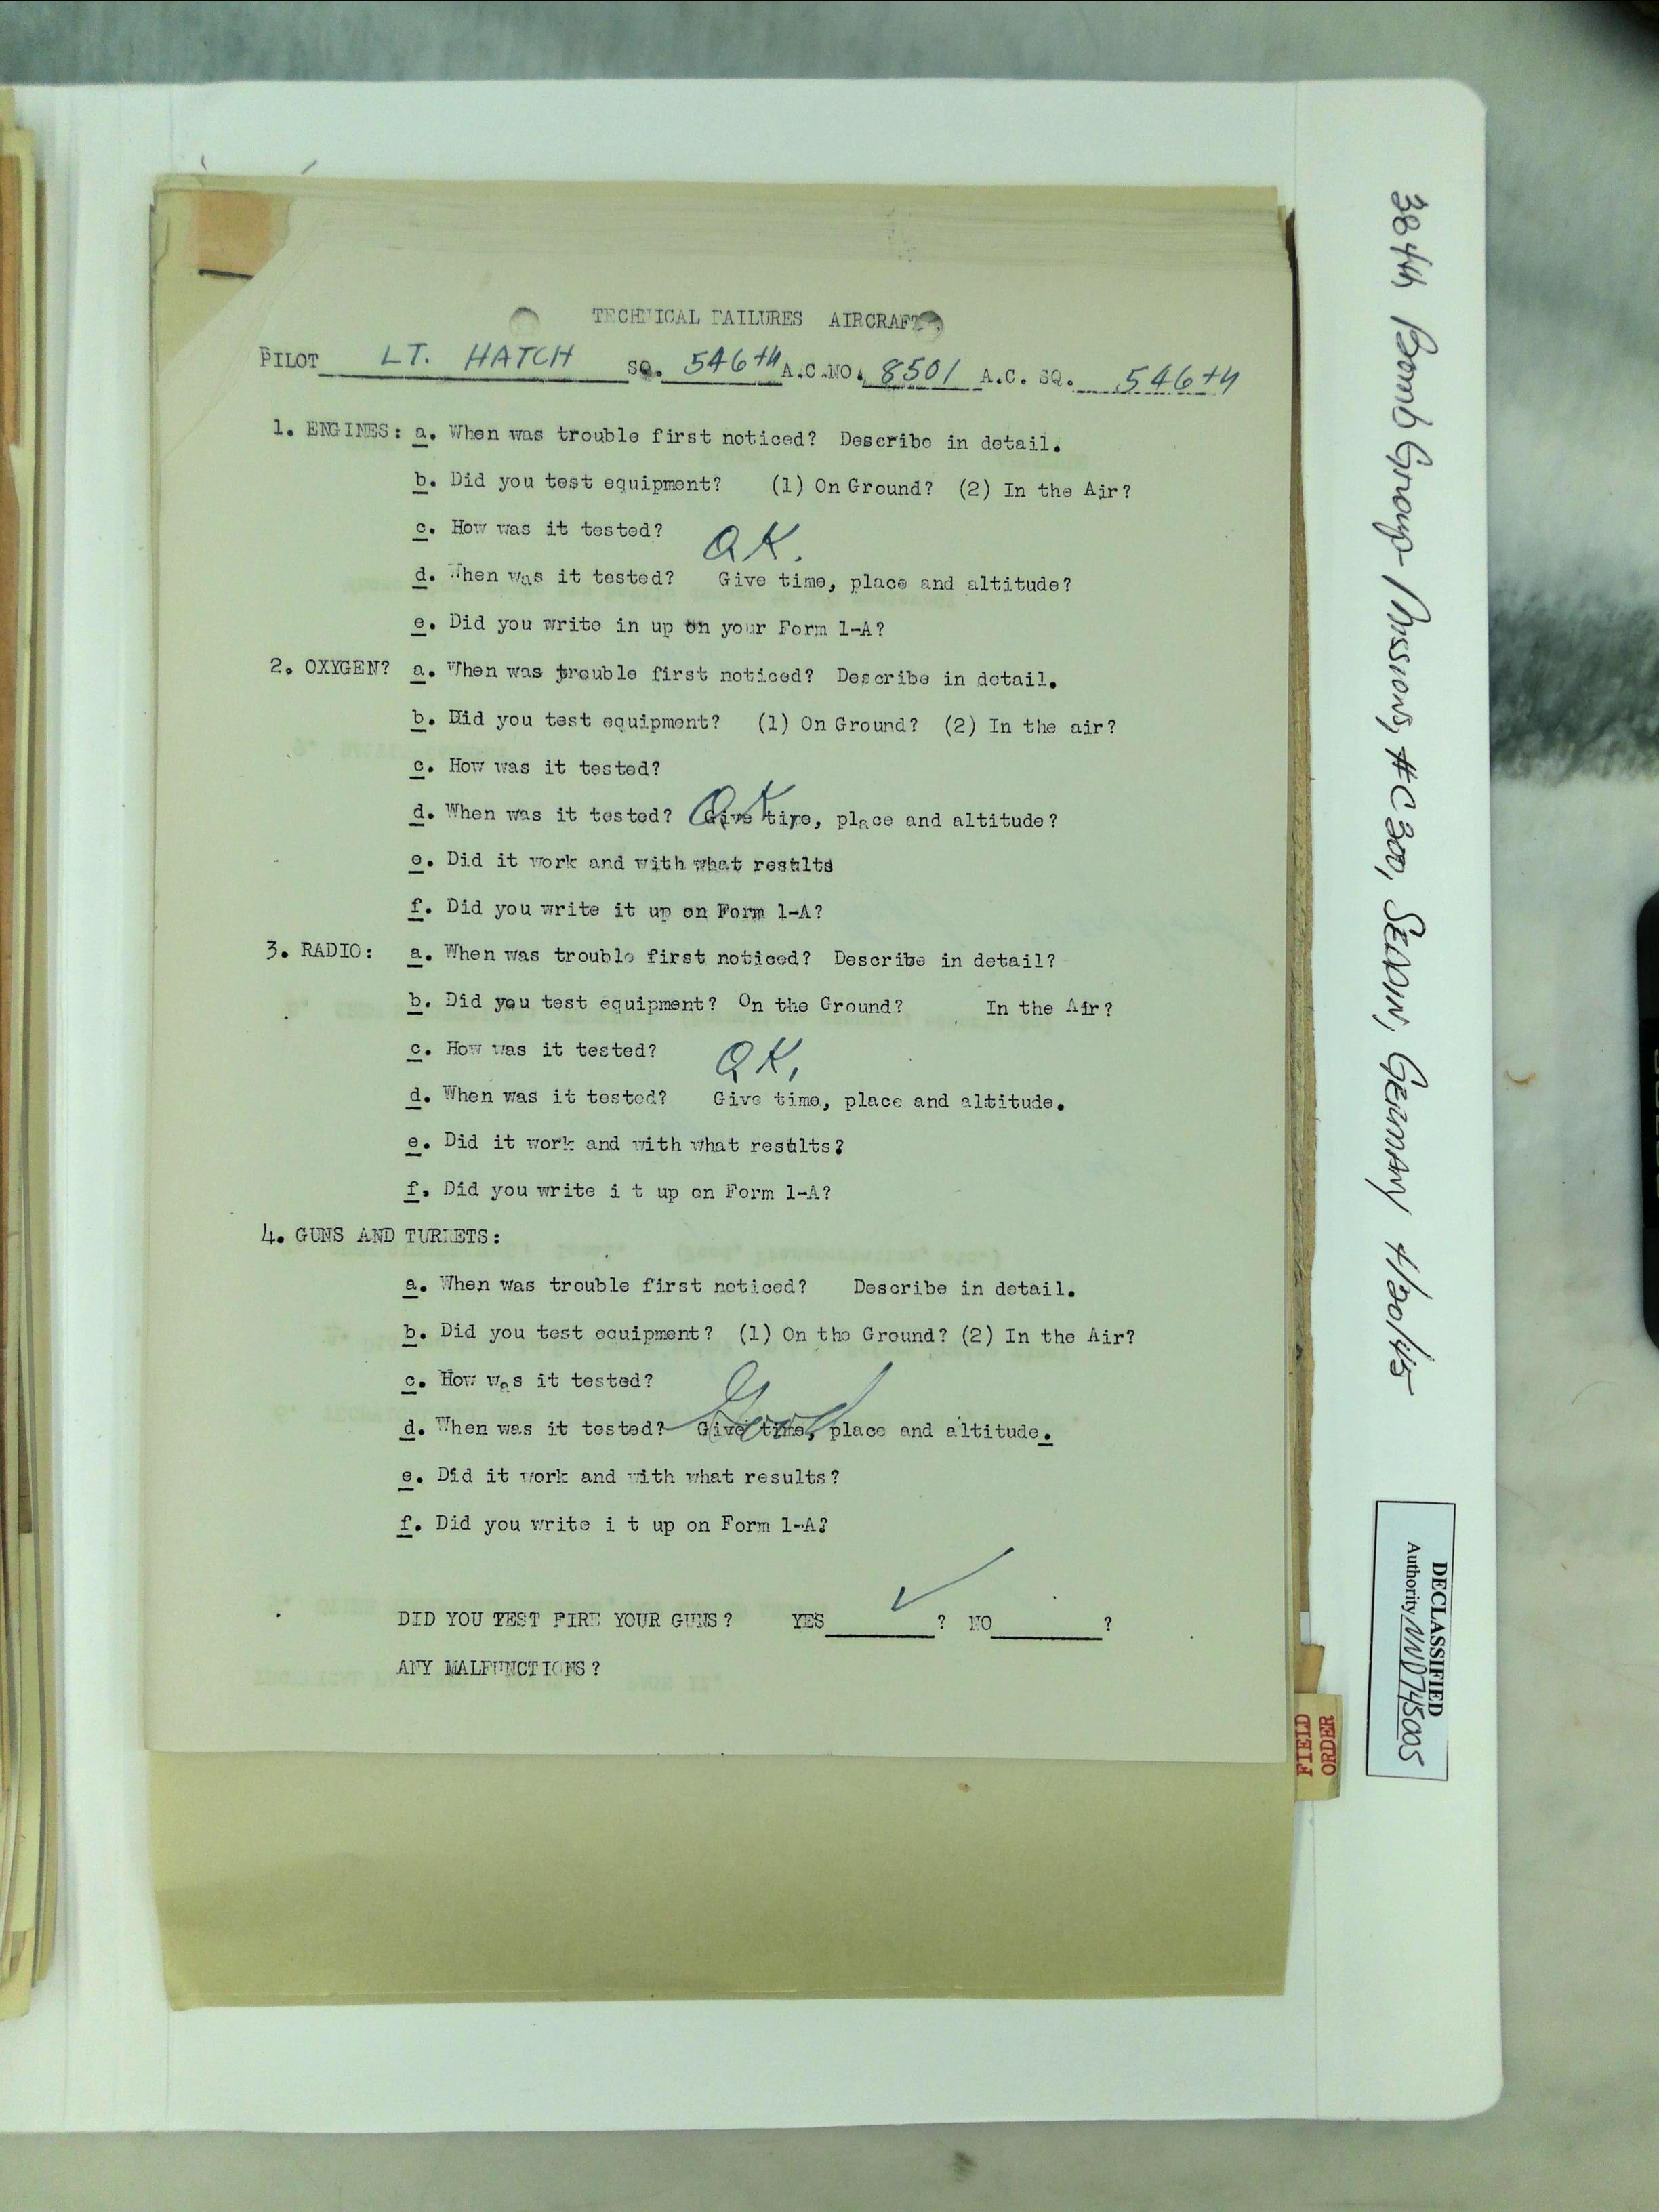 TECHNICAL FAILURES AIRCRAFT
PILOT LT. HATCH SQ. 546th A.C.NO. 8501 A.C. SQ. 546th
1. ENGINES: a. When was trouble first noticed? Describe in detail.
b. Did you test equipment? (1) On Ground? (2) In the Air?
c. How was it tested?
OK.
d. When was it tested? Give time, place and altitude?
e. Did you write in up on your Form 1-A?
2. OXYGEN? a. When was trouble first noticed? Describe in detail.
b. Did you test equipment? (1) On Ground? (2) In the air?
c. How was it tested?
OK
d. When was it tested? Give time, place and altitude?
e. Did it work and with what results
f. Did you write it up on Form 1-A?
3. RADIO: a. When was trouble first noticed? Describe in detail?
b. Did you test equipment? On the Ground? In the Air?
c. How was it tested?
OK,
d. When was it tested? Give time, place and altitude.
e. Did it work and with what results?
f. Did you write i t up on Form 1-A?
4. GUNS AND TURRETS:
a. When was trouble first noticed? Describe in detail.
b. Did you test equipment? (1) On the Ground? (2) In the Air?
c. How was it tested?
Good
d. When was it tested? Give time, place and altitude.
e. Did it work and with what results?
f. Did you write i t up on Form 1-A?
DID YOU TEST FIRE YOUR GUNS? YES ✓ ? NO ?
ANY MALFUNCTIONS?
FIELD
ORDER
384th Bomb Group - Missions, #C300, SEDDIN, GERMANY 4/20/45
DECLASSIFIED
Authority NND745005